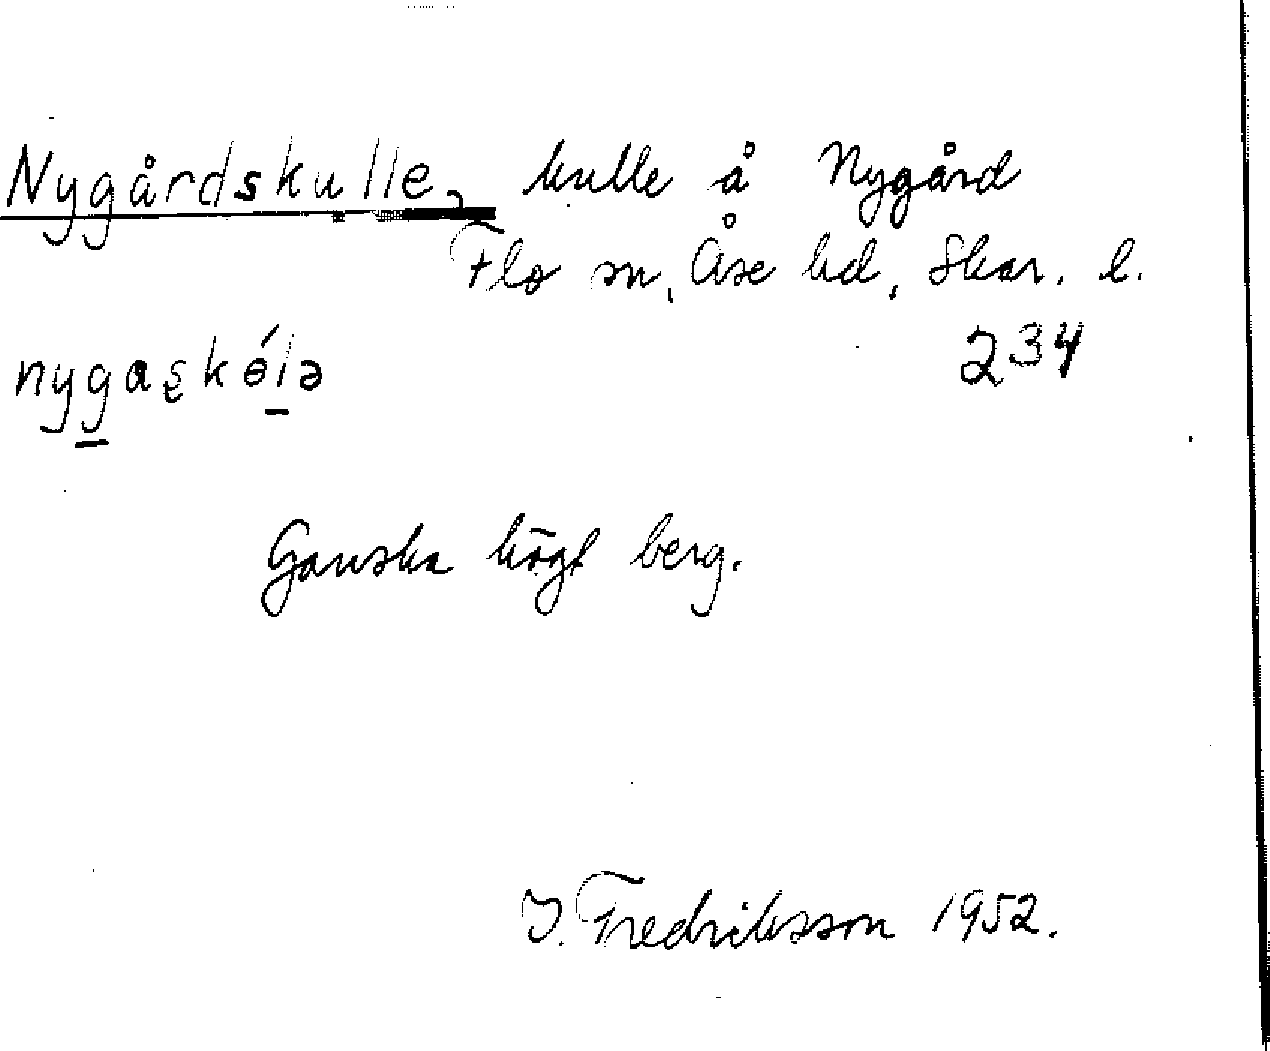 Nygårdskulle, kulle å Nygård
Flo sn, Åse hd, Skar. l.
234
nygaskɵ́lə
Ganska högt berg.
I. Fredriksson 1952.